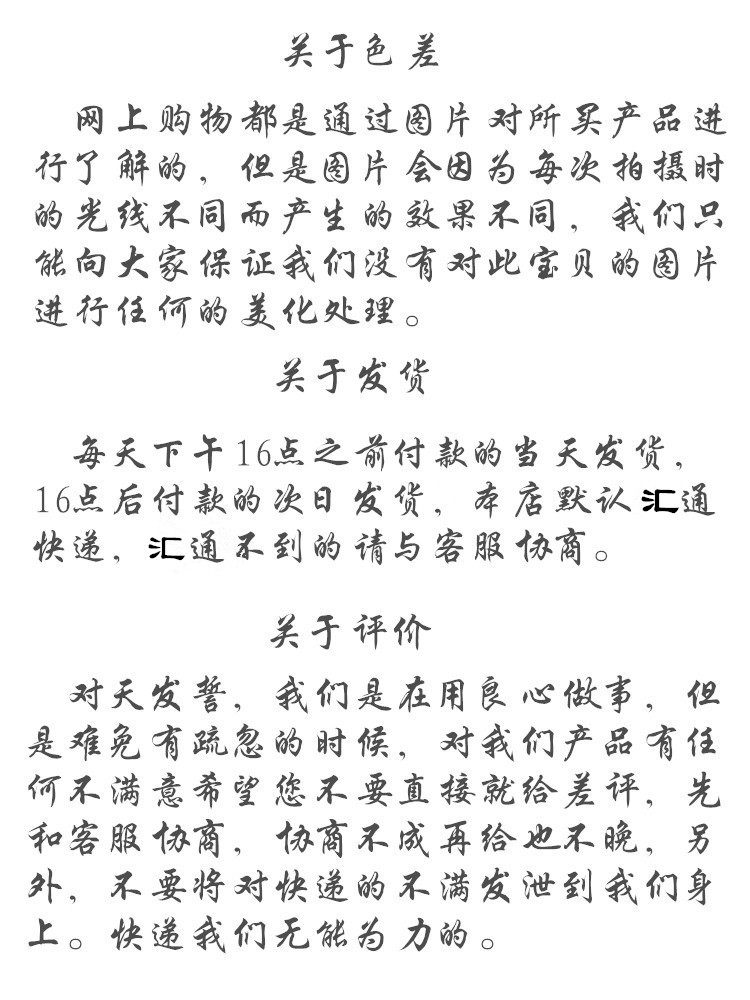 关于色差
网上购物都是通过图片对所买产品进
行了解的，但是图片会因为每次拍摄时
的光线不同而产生的效果不同，我们只
能向大家保证我们没有对此宝贝的图片
进行任何的美化处理。
关于发货
每天下午16点之前付款的当天发货，
16点后付款的次日发货，本店默认汇通
快递，汇通不到的请与客服协商。
关于评价
对天发誓，我们是在用良心做事，但
是难免有疏忽的时候，对我们产品有任
何不满意希望您不要直接就给差评，先
和客服协商，协商不成再给也不晚，另
外，不要将对快递的不满发泄到我们身
上。快递我们无能为力的。